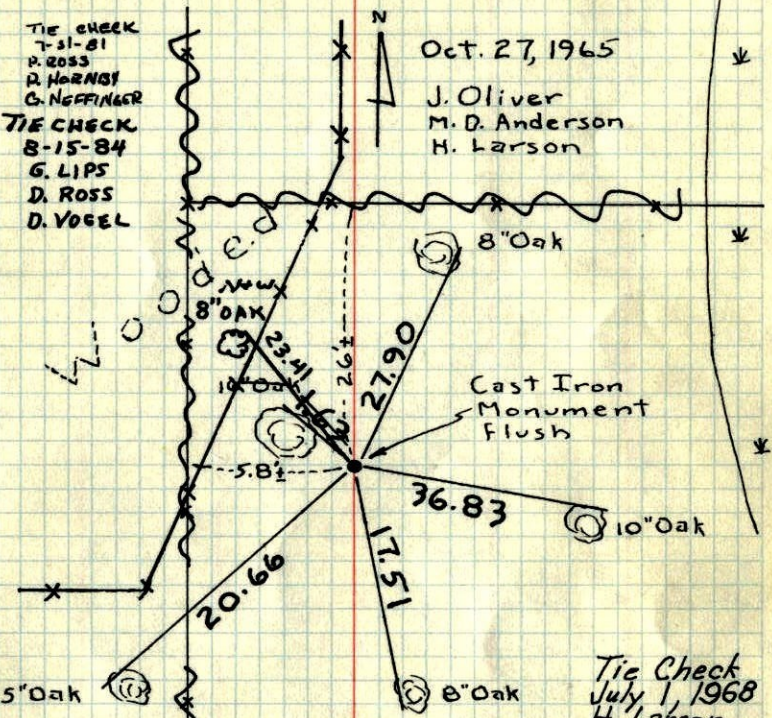 TIE CHECK
7-31-81
P. ROSS
D. HORNBY
G. NEFFINGER
TIE CHECK
8-15-84
G. LIPS
D. ROSS
D. VOGEL
N
Oct. 27, 1965
J. Oliver
M. D. Anderson
H. Larson
Wooded
8" Oak
NEW
8" OAK
23.41
26'±
27.90
10" Oak
Cast Iron
Monument
Flush
5.8'±
36.83
10" Oak
17.51
20.66
5" Oak
8" Oak
Tie Check
July 1, 1968
H. Larson